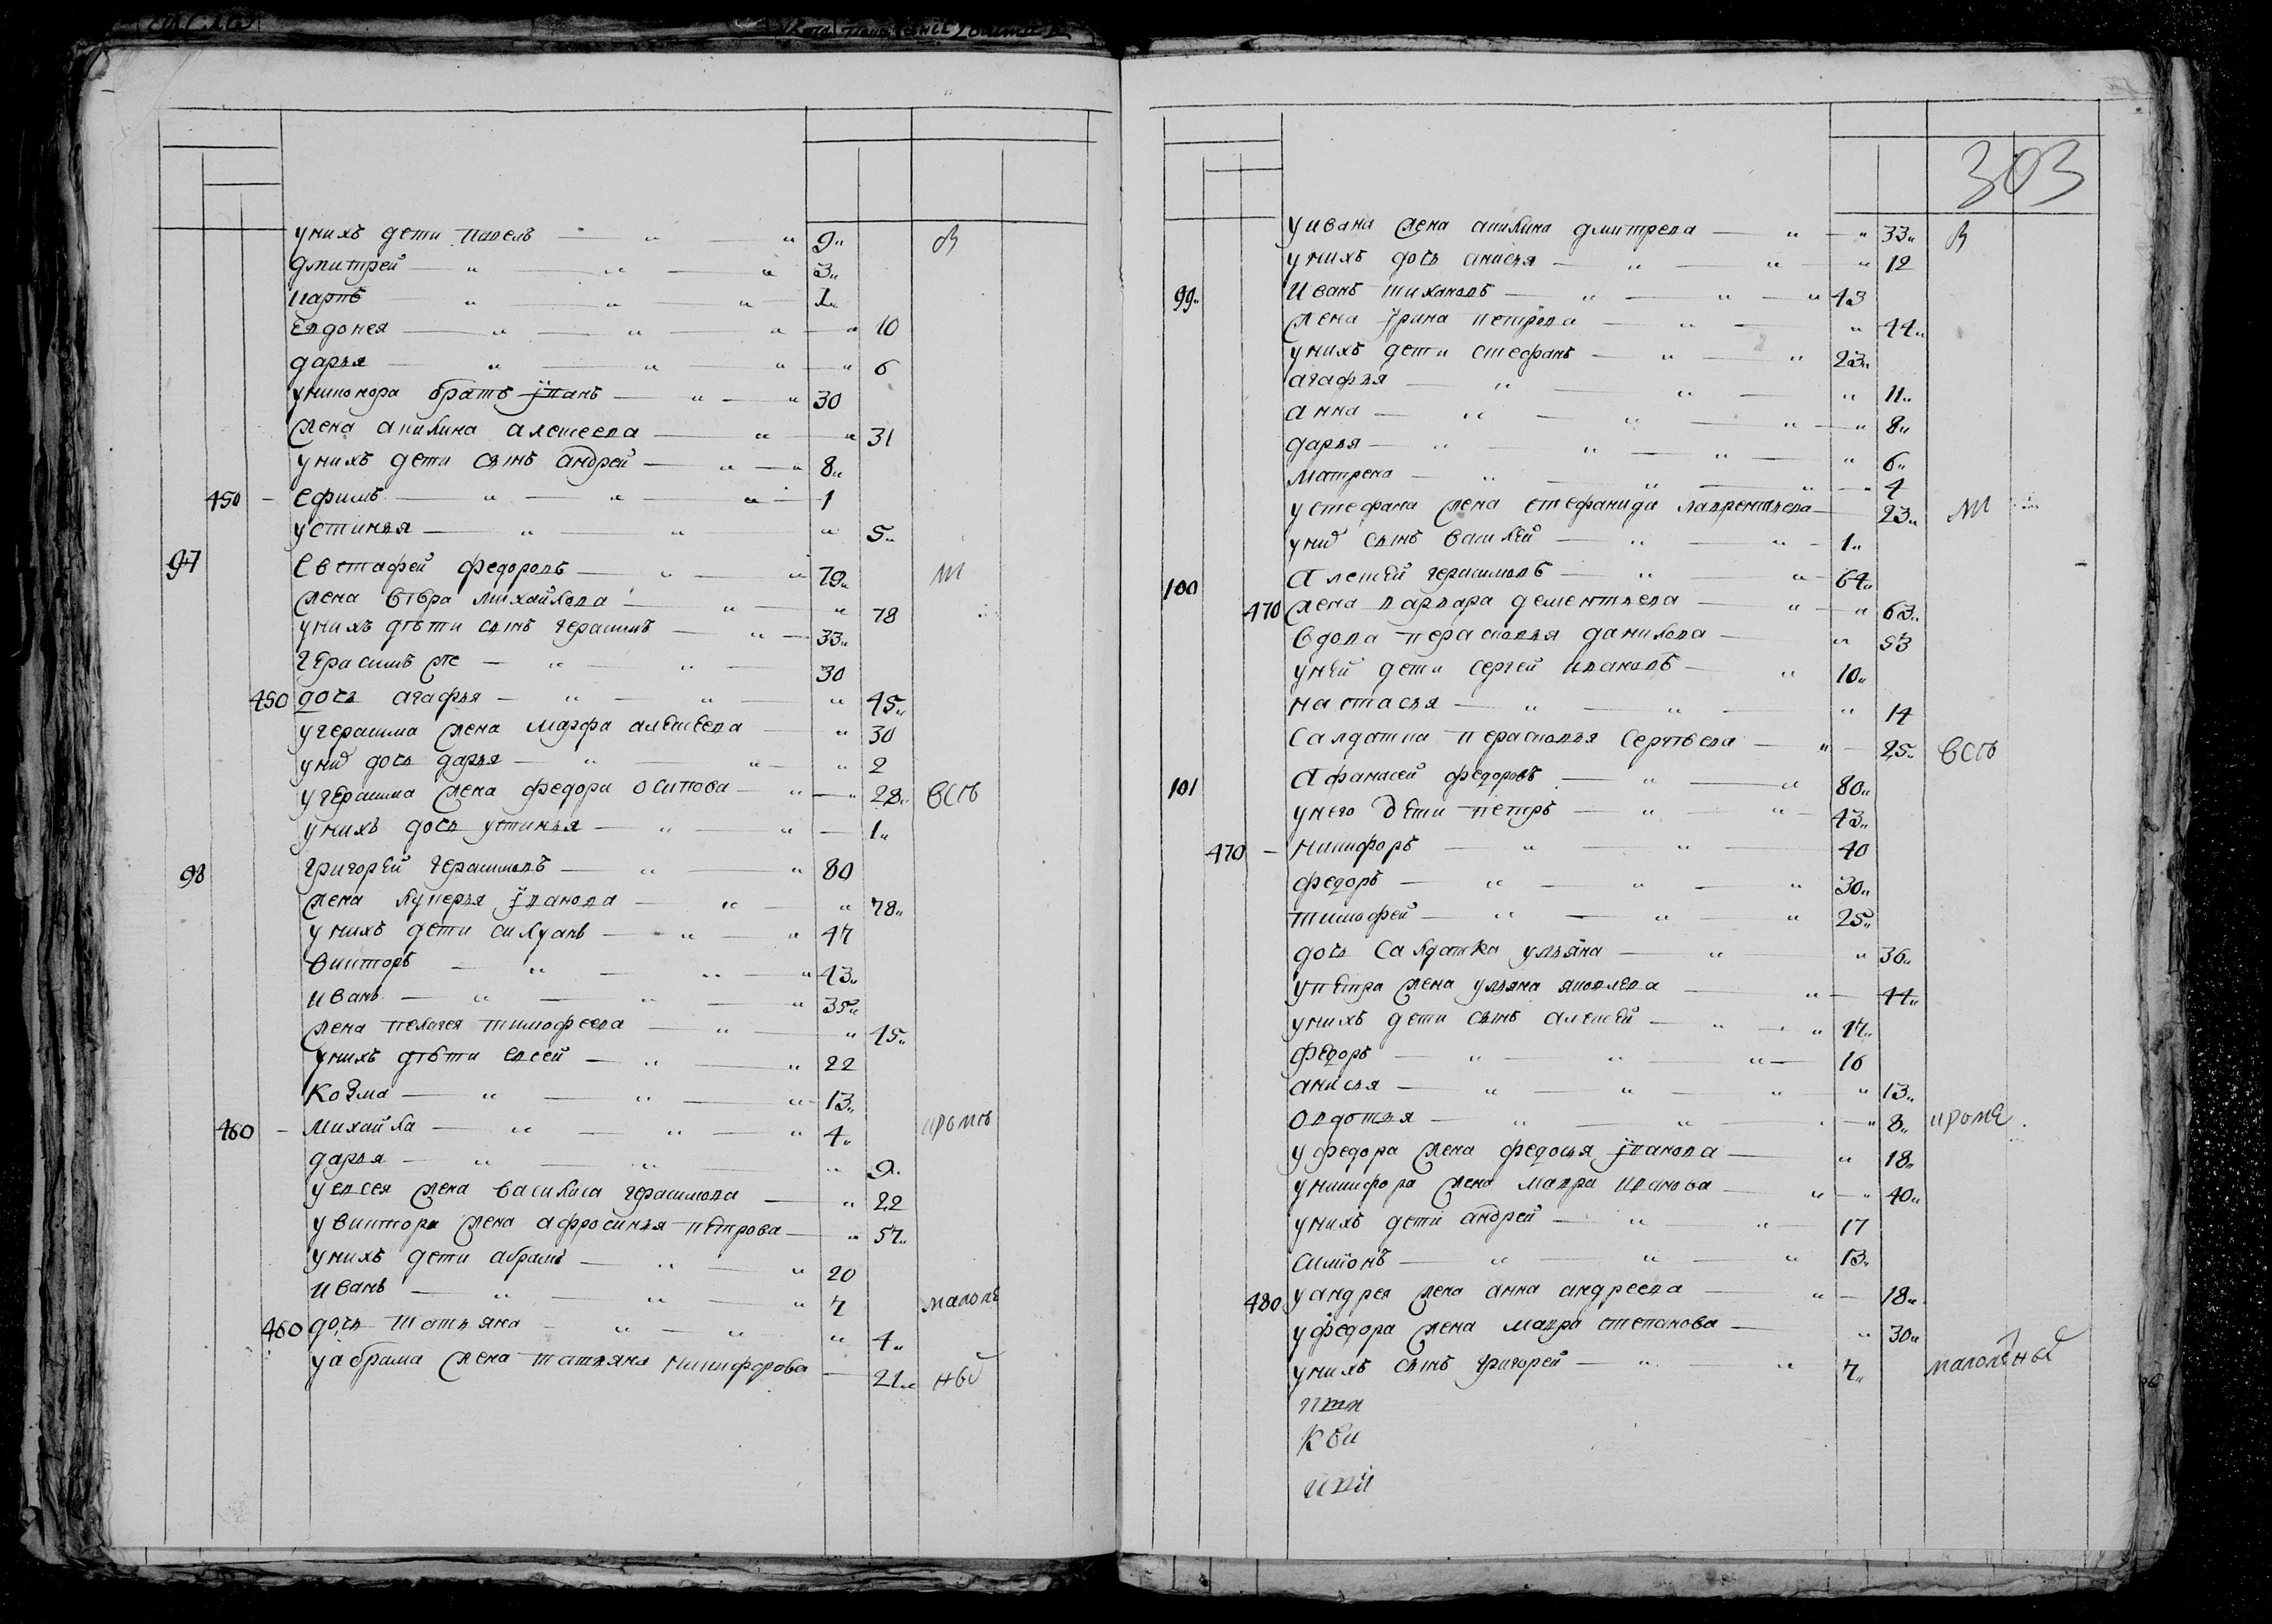 у нихъ дети павелъ — " " 9" В
дмитрей — " — " — " 3"
карпъ — " — " — " 1"
евдокея — " — " — " — " 10
дарья — " — " — " — " 6
у никонора братъ їванъ — " — " 30
жена акилина алексеева — " — " 31
у нихъ дети сынъ андрей — " — " 8"
450 — ефимъ — " — " — " — 1
устинья — " — " — " 5"
97 евстафей федоровъ — " — " 79" М
жена вѣра михайлова — " — " 78
у нихъ дѣти сынъ герасимъ — " — 33"
герасимъ же — " — " — 30
450 дочь агафья — " — " — " 45"
у герасима жена марфа алексеева — " 30
у нид дочь дарья — " — " — " 2
у герасима жена федора осипова — " — " 28" всѣ
у нихъ дочь устинья — " — " — 1"
98 григорей герасимовъ — " — " 80
жена лукерья їванова — " — " 78"
у нихъ дети силуанъ — " — " 47
викторъ — " — " — " 43"
иванъ — " — " — " 35"
жена пелагея тимофеева — " — " 45"
у нихъ дѣти евсей — " — " 22
козма — " — " — " 13"
460 — михайла — " — " — " 4" кромѣ
дарья — " — " — " 9"
у евсея жена василиса герасимова — " 22
у виктора жена афросинья петрова — " 57"
у нихъ дети абрамъ — " — " 20
иванъ — " — " — " 7 малоле
460 дочь татьяна — " — " — " 4"
у абрама жена татьяна никифорова — 21" ный
303
у ивана жена акилина дмитрева — " — " 33" В
у нихъ дочь анисья — " — " — " 12
99" иванъ тихановъ — " — " — " 43
жена їрина петрова — " — " 44"
у нихъ дети стефанъ — " — " 23"
агафья — " — " — " 11"
анна — " — " — " — " 8"
дарья — " — " — " — " 6"
матрена — " — " — " — " 4
у стефана жена стефанида лаврентьева — 23" М
у нид сынъ василей — " — " — 1"
100 алексей герасимовъ — " — " — 64"
470 жена варвара дементьева — " — " 63"
вдова парасковья данилова — " 53
у ней дети сергей ивановъ — " 10"
настасья — " — " — " 14
салдатка парасковья сергѣева — " — 25" всѣ
101 афанасей федоровъ — " — " 80"
у него дети петръ — " — " — 43"
470 — никифоръ — " — " — 40
федоръ — " — " — " 30"
тимофей — " — " — " 25"
дочь салдатка ульяна — " — " 36"
у петра жена ульяна яковлева — " — 44"
у нихъ дети сынъ алексей — " — " 17"
федоръ — " — " — " — 16
анисья — " — " — " — " 13"
овдотья — " — " — " 8" кроме
у федора жена федосья їванова — " 18"
у никифора жена мавра иванова — " — " 40"
у нихъ дети андрей — " — " — 17
симионъ — " — " — " 13"
480 у андрея жена анна андреева — " — 18"
у федора жена мавра степанова — " 30"
у нихъ сынъ григорей — " — " 7" малолетный